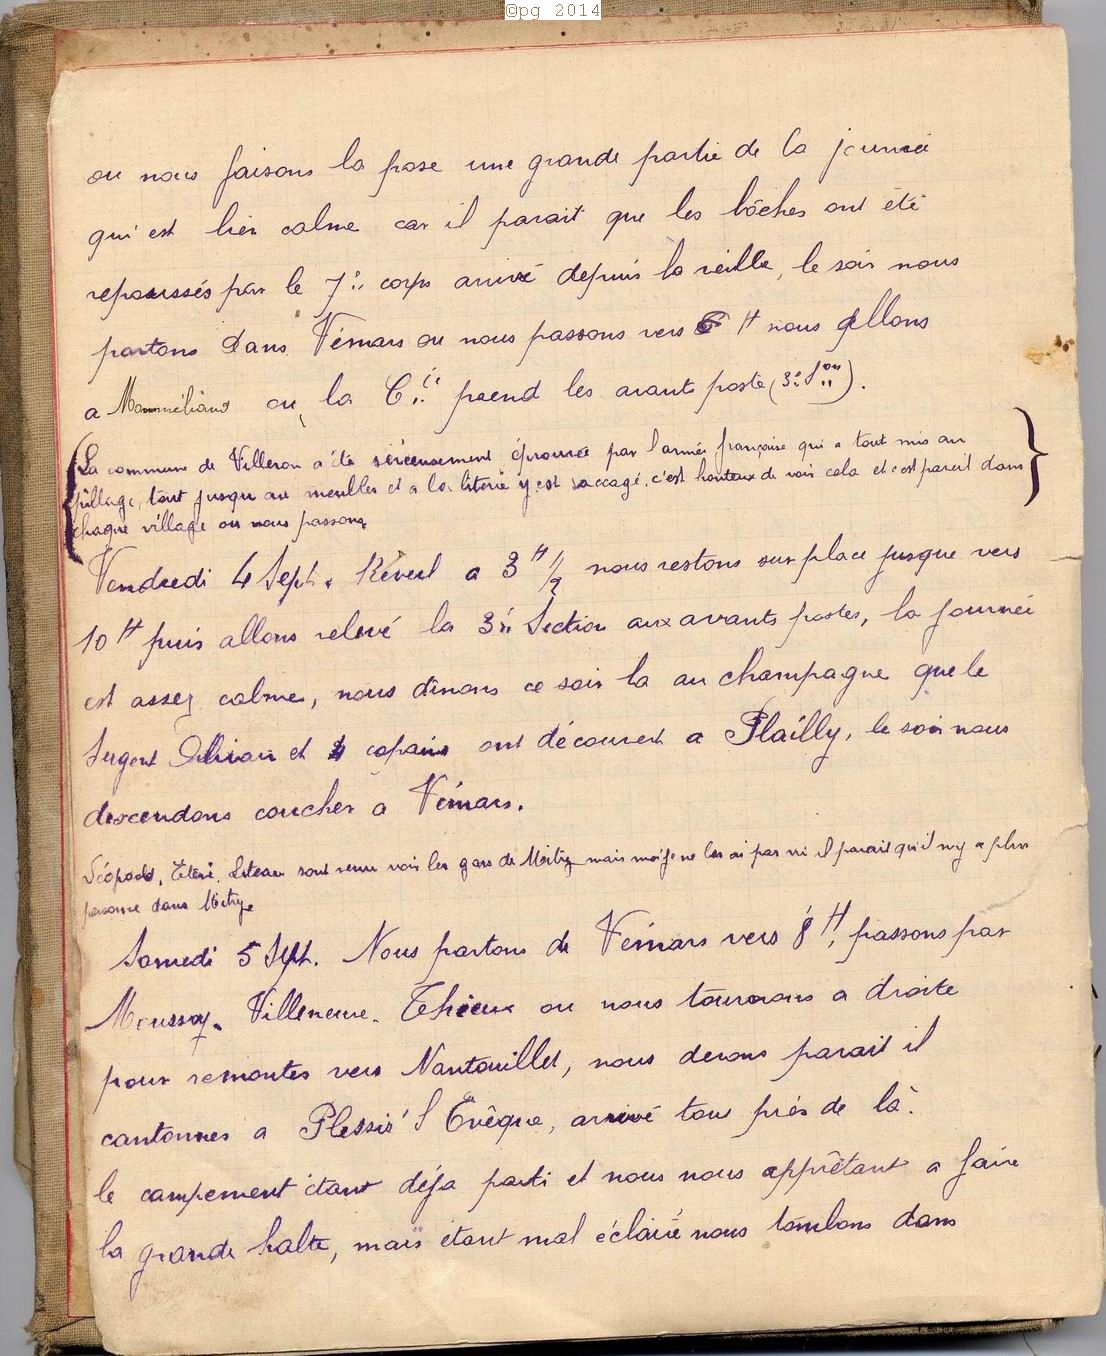 ©pg 2014
ou nous faisons la pose une grande partie de la journée
qui est bien calme car il parait que les bôches ont été
repoussés par le 7e corps arrivé depuis la veille, le soir nous
partons dans Vémars ou nous passons vers 6 H nous allons
a ou la Cie prend les avant poste (3e Son).
La commune de Villeron a été sérieusement éprouvée par l'armée française qui a tout mis au
pillage, tout jusqu'au meubles et a la literie y est saccagé, c'est honteux de voir cela et c'est pareil dans
chaque village ou nous passons
Vendredi 4 Sept. Réveil a 3 H 1/2 nous restons sur place jusque vers
10 H puis allons relevé la 3e Section aux avants postes, la journée
est assez calme, nous dinons ce soir la au champagne que le
Sergent et 4 copains ont découvert a Plailly, le soir nous
descendons coucher a Vémars.
Léopold, sont venu voir les gars de Mitry mais moi je ne les ai pas vu il parait qu'il n'y a plus
personne dans Mitry
Samedi 5 Sept. Nous partons de Vémars vers 8 H, passons par
Moussy. Villeneuve. Thieux ou nous tournons a droite
pour remonter vers Nantouillet, nous devons parait il
cantonner a Plessis l'Evêque, arrivé tout près de là.
le campement étant déja parti et nous nous apprêtant a faire
la grande halte, mais étant mal éclairé nous tombons dans